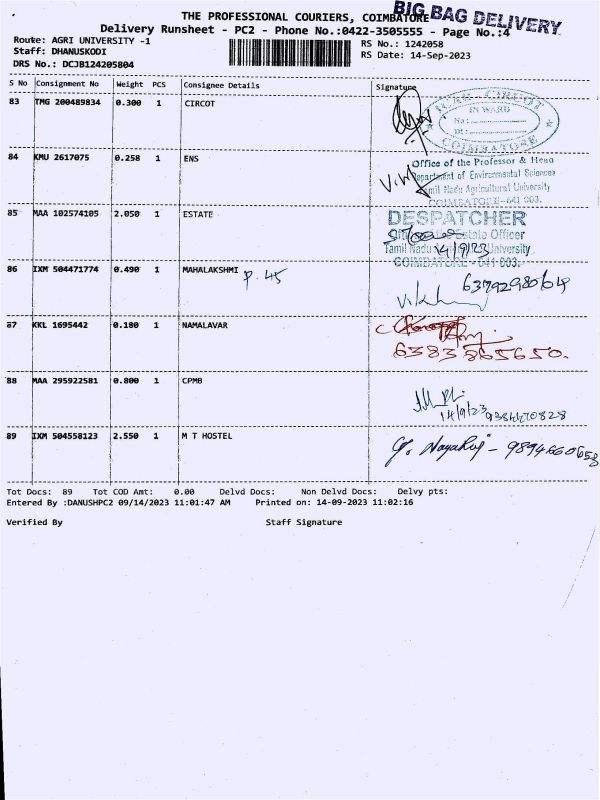 THE PROFESSIONAL COURIERS, COIMBATORE
BIG BAG DELIVERY
Delivery Runsheet - PC2 - Phone No.:0422-3505555 - Page No.:4
Route: AGRI UNIVERSITY -1
RS No.: 1242058
Staff: DHANUSKODI
RS Date: 14-Sep-2023
DRS No.: DCJB124205804
S No Consignment No Weight PCS Consignee Details Signature
83 TMG 200489834 0.300 1 CIRCOT
ICAR CIRCOT
INWARD
No :
Dt :
COIMBATORE
84 KMU 2617075 0.258 1 ENS
Office of the Professor & Head
Department of Environmental Sciences
Tamil Nadu Agricultural University
COIMBATORE-641 003.
85 MAA 102574105 2.050 1 ESTATE
DESPATCHER
Estate Officer
Tamil Nadu 14/9/23 University
COIMBATORE - 641 003.
86 IXM 504471774 0.490 1 MAHALAKSHMI P. 45
87 KKL 1695442 0.180 1 NAMALAVAR
6383865650.
88 MAA 295922581 0.800 1 CPMB
14/9/23
89 IXM 504558123 2.550 1 M T HOSTEL
Tot Docs: 89 Tot COD Amt: 0.00 Delvd Docs: Non Delvd Docs: Delvy pts:
Entered By :DANUSHPC2 09/14/2023 11:01:47 AM Printed on: 14-09-2023 11:02:16
Verified By Staff Signature